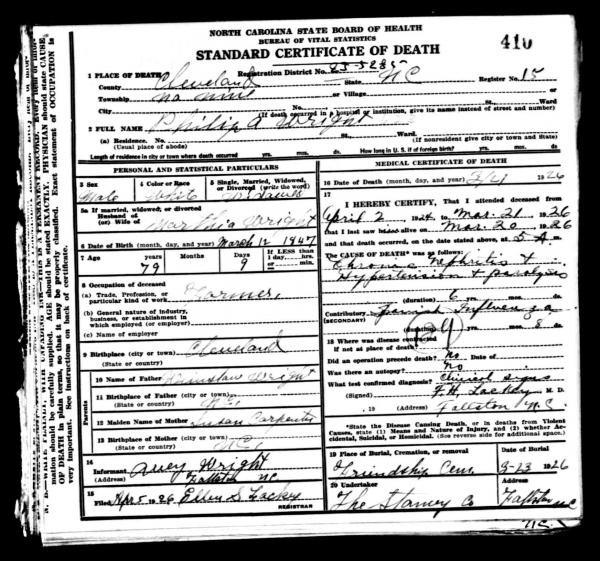 NORTH CAROLINA STATE BOARD OF HEALTH
BUREAU OF VITAL STATISTICS
STANDARD CERTIFICATE OF DEATH
410
1 PLACE OF DEATH
Registration District No. 23-5285
County Cleveland State NC Register No. 15
Township No nine or Village or
City No. St., Ward
(If death occurred in a hospital or institution, give its name instead of street and number)
2 FULL NAME Philip A Wright
(a) Residence. No. St., Ward
(Usual place of abode) (If nonresident give city or town and State)
Length of residence in city or town where death occurred yrs. mos. ds. How long in U. S. if of foreign birth? yrs. mos. ds.
PERSONAL AND STATISTICAL PARTICULARS
3 Sex 4 Color or Race 5 Single, Married, Widowed, or Divorced (write the word)
Male White
5a If married, widowed, or divorced
Husband of
(or) Wife of Wright
6 Date of Birth (month, day, and year) March 12 1847
7 Age Years Months Days If LESS than 1 day, hrs. or min.
79 9
8 Occupation of deceased
(a) Trade, Profession, or particular kind of work Farmer
(b) General nature of industry, business, or establishment in which employed (or employer)
(c) Name of employer
9 Birthplace (city or town) Cleveland
(State or country)
Parents
10 Name of Father Wright
11 Birthplace of Father (city or town)
(State or country) NC
12 Maiden Name of Mother Susan Carpenter
13 Birthplace of Mother (city or town)
(State or country) NC
14
Informant Wright
(Address) Fallston NC
15
Filed Apr 5 1926 Ellen S. Lackey
REGISTRAR
MEDICAL CERTIFICATE OF DEATH
16 Date of Death (month, day, and year) 3/21 1926
17
I HEREBY CERTIFY, That I attended deceased from
April 2 1924 to Mar. 21 1926
that I last saw him alive on Mar. 20 1926
and that death occurred, on the date stated above, at 5 A m.
The CAUSE OF DEATH* was as follows:
Chronic Nephritis +
Hypertension + paralysis
(duration) 6 yrs. mos. ds.
Contributory Influenza
(SECONDARY)
(duration) yrs. mos. 8 ds.
18 Where was disease contracted
if not at place of death?
Did an operation precede death? No Date of
Was there an autopsy? No
What test confirmed diagnosis? Clinical signs
(Signed) F.H. Lackey M. D.
, 19 (Address) Fallston N.C.
*State the Disease Causing Death, or in deaths from Violent Causes, state (1) Means and Nature of Injury, and (2) whether Accidental, Suicidal, or Homicidal. (See reverse side for additional space.)
19 Place of Burial, Cremation, or removal Date of Burial
Friendship Cem 3-23 1926
20 Undertaker Address
The Stamey Co Fallston NC
N.C.